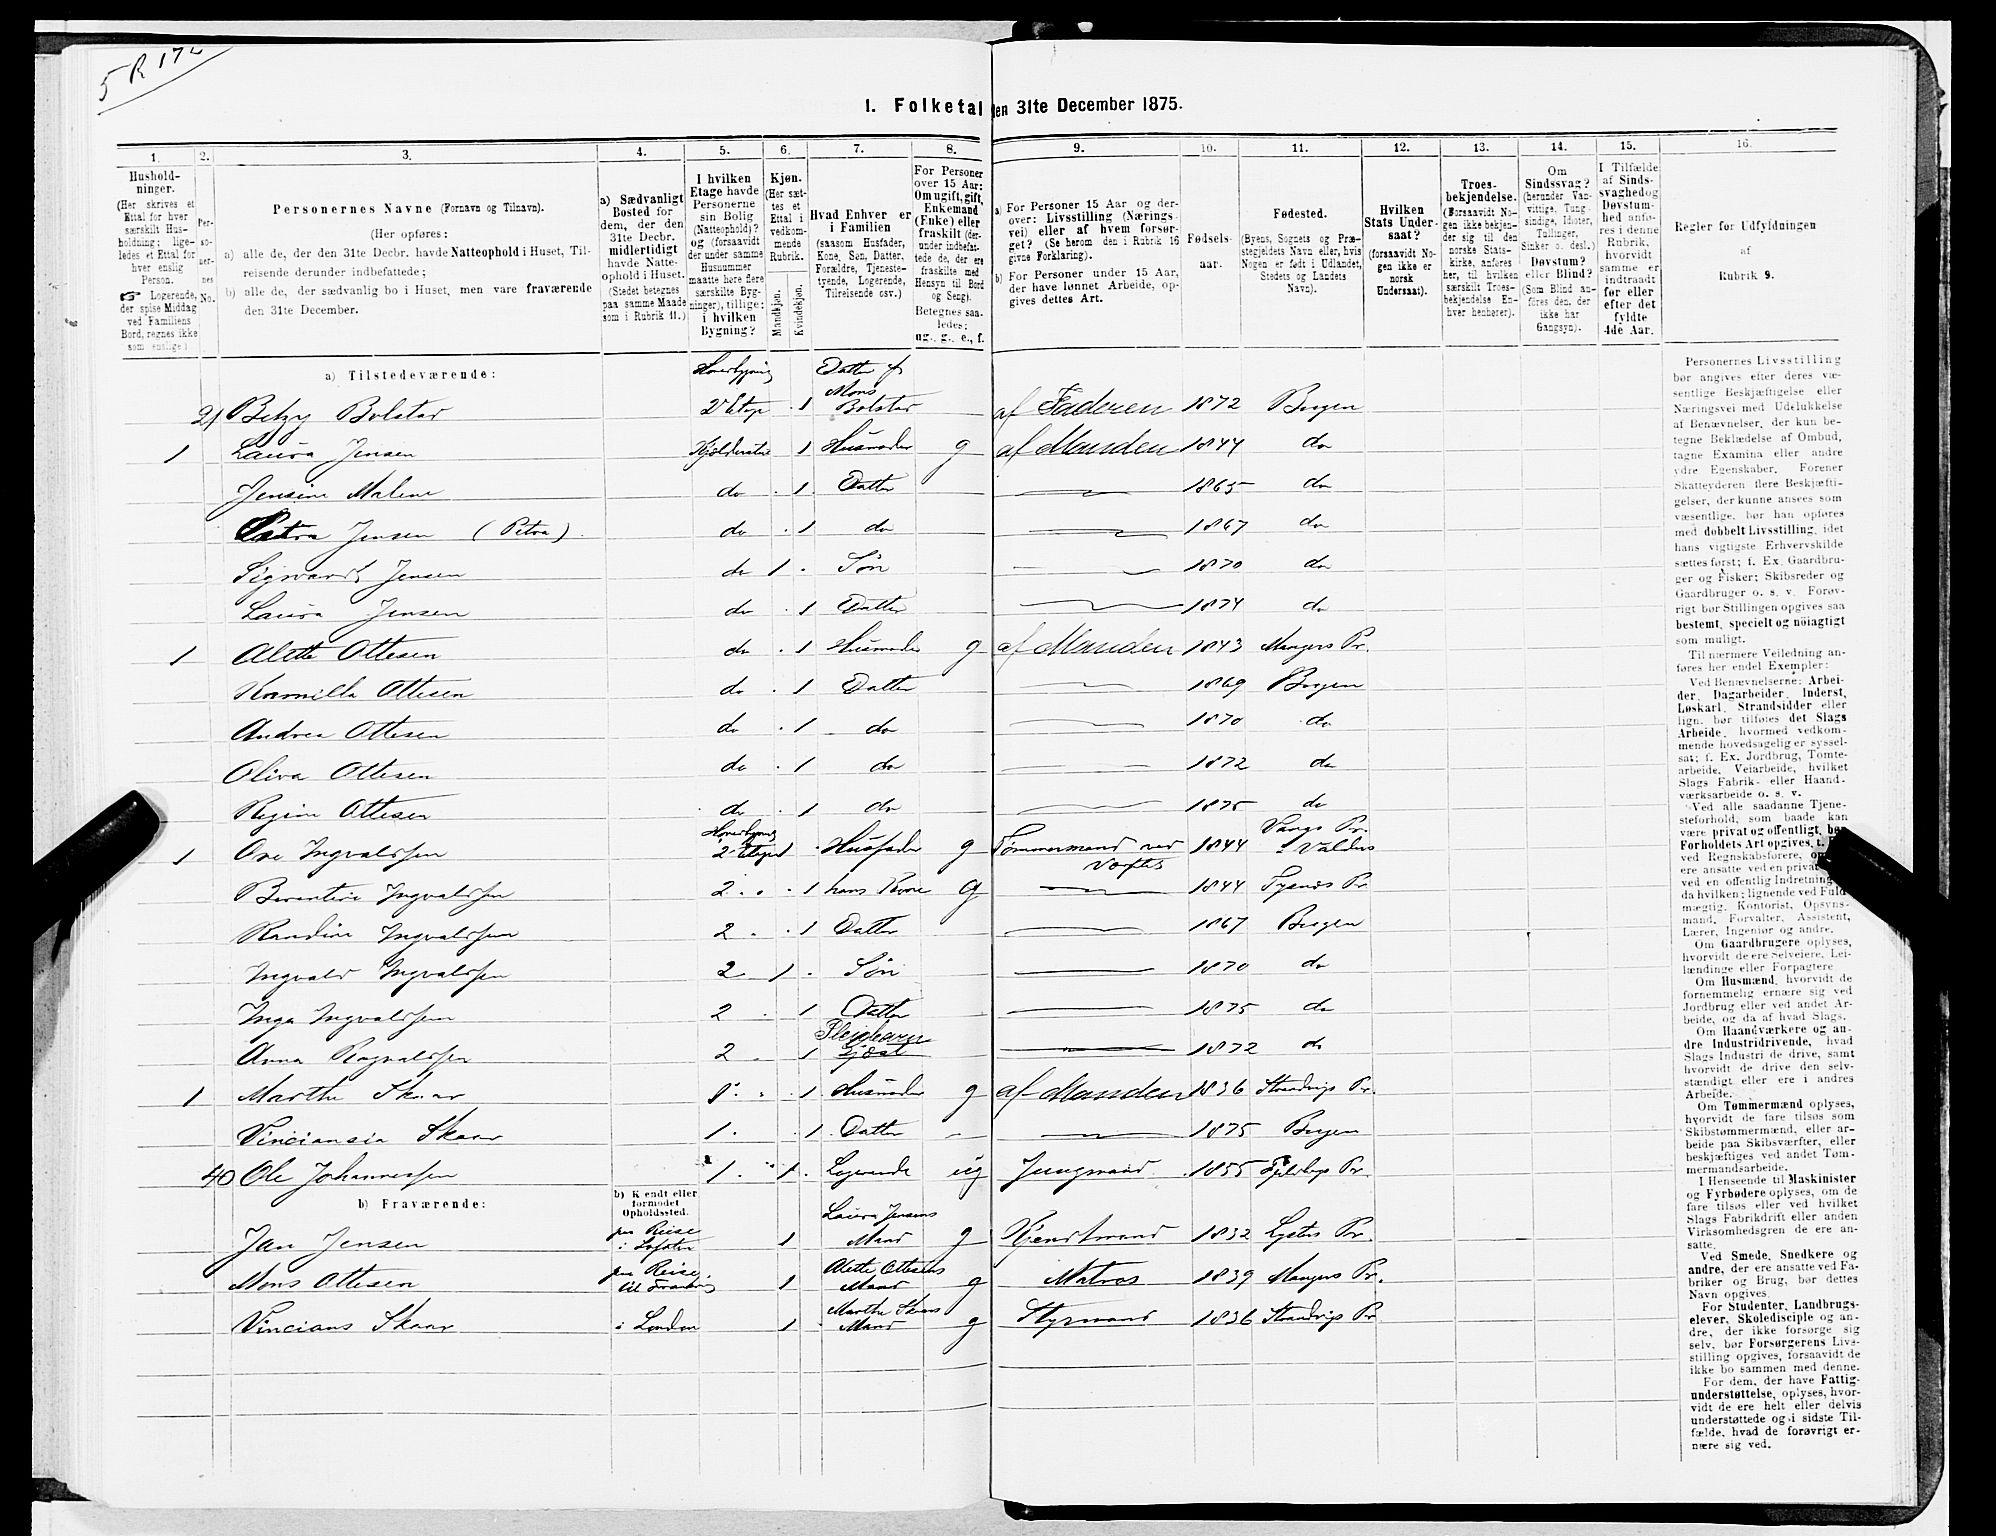 5 R 172
1. Folketal den 31te December 1875.
1. 2. 3. 4. 5. 6. 7. 8. 9. 10. 11. 12. 13. 14. 15. 16.
Hushold-
ninger.
(Her skrives et
Ettal for hver
særskilt Hus-
holdning; lige-
ledes et Ettal for
hver enslig
Person.
☞ Logerende,
der spise Middag
ved Familiens
Bord, regnes ikke
som enslige.)
Per-
so-
ner-
nes
No.
Personernes Navne (Fornavn og Tilnavn).
(Her opføres:
a) alle de, der den 31te Decbr. havde Natteophold i Huset, Til-
reisende derunder indbefattede;
b) alle de, der sædvanlig bo i Huset, men vare fraværende
den 31te December.
a) Sædvanligt
Bosted for
dem, der den
31te Decbr.
midlertidigt
havde Natte-
ophold i Huset.
(Stedet betegnes
paa samme Maade
som i Rubrik 11.)
I hvilken
Etage havde
Personerne
sin Bolig
(Natteophold)?
og (forsaavidt
der under samme
Husnummer
maatte høre flere
særskilte Byg-
ninger), tillige:
i hvilken
Bygning?
Kjøn.
(Her sæt-
tes et
Ettal i
vedkom-
mende
Rubrik.
Mandkjøn.
Kvindekjøn.
Hvad Enhver er
i Familien
(saasom Husfader,
Kone, Søn, Datter,
Forældre, Tjeneste-
tyende, Logerende,
Tilreisende osv.)
For Personer
over 15 Aar:
Om ugift, gift,
Enkemand
(Enke) eller
fraskilt (der-
under indbefat-
tede de, der ere
fraskilte med
Hensyn til Bord
og Seng).
Betegnes saa-
ledes:
ug., g., e., f.
a) For Personer 15 Aar og der-
over: Livsstilling (Nærings-
vei) eller af hvem forsør-
get? (Se herom den i Rubrik 16
givne Forklaring).
b) For Personer under 15 Aar,
der have lønnet Arbeide, op-
gives dettes Art.
Fødsels-
aar.
Fødested.
(Byens, Sognets og Præ-
stegjeldets Navn eller, hvis
Nogen er født i Udlandet,
Stedets og Landets
Navn).
Hvilken
Stats Under-
saat?
(forsaavidt No-
gen ikke er
norsk
Undersaat).
Troes-
bekjendelse.
(Forsaavidt No-
gen ikke bekjen-
der sig til den
norske Stats-
kirke, anføres
her, til hvilken
særskilt Troes-
bekjendelse En-
hver henhører).
Om
Sindssvag?
(herunder Van-
vittige, Tung-
sindige, Idioter,
Tullinger,
Sinker o. desl.)
Døvstum?
eller Blind?
(Som Blind an-
føres den, der
ikke har
Gangsyn).
I Tilfælde
af Sinds-
svaghed og
Døvstum-
hed anfø-
res i denne
Rubrik,
hvorvidt
samme er
indtraadt
før eller
efter det
fyldte
4de Aar.
Regler for Udfyldningen
af
Rubrik 9.
a) Tilstedeværende:
21 Betzy Bolstad 2 Etage 1 Datter af Mons Bolstad af Faderen 1872 Bergen
1 Laura Jensen 1 Husmoder g af Manden 1844 do
Jensine Malene do 1 Datter 1865 do
Petra Jensen (Petra) do 1 do 1867 do
Sigvardt Jensen do 1 Søn 1870 do
Laura Jensen do 1 Datter 1874 do
1 Alette Ottesen do 1 Husmoder g af Manden 1843 Mangers Pr.
Kamilla Ottesen do 1 Datter 1869 Bergen
Andrea Ottesen do 1 do 1870 do
Oliva Ottesen do 1 do 1872 do
Regine Ottesen do 1 do 1875 do
1 Ove Ingvaldsen 2 Etage 1 Husfader g Tømmermand ved Værftet 1844 Vangs Pr. i Valders
Berentine Ingvaldsen 2 1 hans Kone g 1844 Tysnæs Pr
Randine Ingvaldsen 2 1 Datter 1867 Bergen
Ingvald Ingvaldsen 2 1 Søn 1870 do
Inga Ingvaldsen 2 1 Datter 1875 do
Anna Ragnvaldsen 2 1 Pleiebarn 1872 do
1 Marthe Skaar 1 1 Husmoder g af Manden 1836 Strandvigs Pr.
Vinciansia Skaar 1 1 Datter 1875 Bergen
40 Ole Johannessen 1 1 Logerende ug Jungmand 1855
b) Fraværende:
b) Kjendt eller
formodet
Opholdssted.
Jan Jensen paa Reise i Lofoten 1 Laura Jensens Mand g 1832 Lysters Pr.
Mons Ottesen paa Reise til 1 Alette Ottesens Mand g Matros 1839 Mangers Pr.
Vincians Skaar i London 1 Marthe Skaars Mand g Styrmand 1836 Strandvigs Pr
Personernes Livsstilling
bør angives efter deres væ-
sentlige Beskjæftigelse eller
Næringsvei med Udelukkelse
af Benævnelser, der kun be-
tegne Beklædelse af Ombud,
tagne Examina eller andre
ydre Egenskaber. Forener
Skatteyderen flere Beskjæfti-
gelser, der kunne ansees som
væsentlige, bør han opføres
med dobbelt Livsstilling, idet
hans vigtigste Erhvervskilde
sættes først; f. Ex. Gaardbru-
ger og Fisker; Skibsreder og
Gaardbruger o. s. v. Forøv-
rigt bør Stillingen opgives saa
bestemt, specielt og nöiagtigt
som muligt.
Til nærmere Veiledning an-
føres her endel Exempler:
Ved Benævnelserne: Arbei-
der, Dagarbeider, Inderst,
Løskarl, Strandsidder eller
lign. bør tilføies det Slags
Arbeide, hvormed vedkom-
mende hovedsagelig er syssel-
sat; f. Ex. Jordbrug, Tomte-
arbeide, Veiarbeide, hvilket
Slags Fabrik- eller Haand-
værksarbeide o. s. v.
Ved alle saadanne Tjene-
steforhold, som baade kan
være privat og offentligt, bør
Forholdets Art opgives, t.
ved Regnskabsførere,
ere ansatte ved en privat
ved en offentlig Indretning
da hvilken; lignende ved Fuld-
mægtig, Kontorist, Opsyns-
mand, Forvalter, Assistent,
Lærer, Ingeniør og andre.
Om Gaardbrugere oplyses,
hvorvidt de ere Selveiere, Lei-
lændinge eller Forpagtere
Om Husmænd, hvorvidt de
fornemmelig ernære sig ved
Jordbrug eller ved andet Ar-
beide, og da af hvad Slags.
Om Haandværkere og an-
dre Industridrivende, hvad
Slags Industri de drive, samt
hvorvidt de drive den selv-
stændigt eller ere i andres
Arbeide.
Om Tømmermænd oplyses,
hvorvidt de fare tilsøs som
Skibstømmermænd, eller ar-
beide paa Skibsværfter, eller
beskjæftiges ved andet Tøm-
mermandsarbeide.
I Henseende til Maskinister
og Fyrbødere oplyses, om de
fare tilsøs eller ved hvilket
Slags Fabrikdrift eller anden
Virksomhedsgren de ere an-
satte.
Ved Smede, Snedkere og
andre, der ere ansatte ved Fa-
briker og Brug, bør dettes
Navn opgives.
For Studenter, Landbrugs-
elever, Skoledisciple og an-
dre, der ikke forsørge sig
selv, bør Forsørgerens Livs-
stilling opgives, forsaavidt de
ikke bo sammen med denne.
For dem, der have Fattig-
understøttelse, oplyses, hvor-
vidt de ere helt eller delvis
understøttede og i sidste Til-
fælde, hvad de forøvrigt er-
nære sig ved.